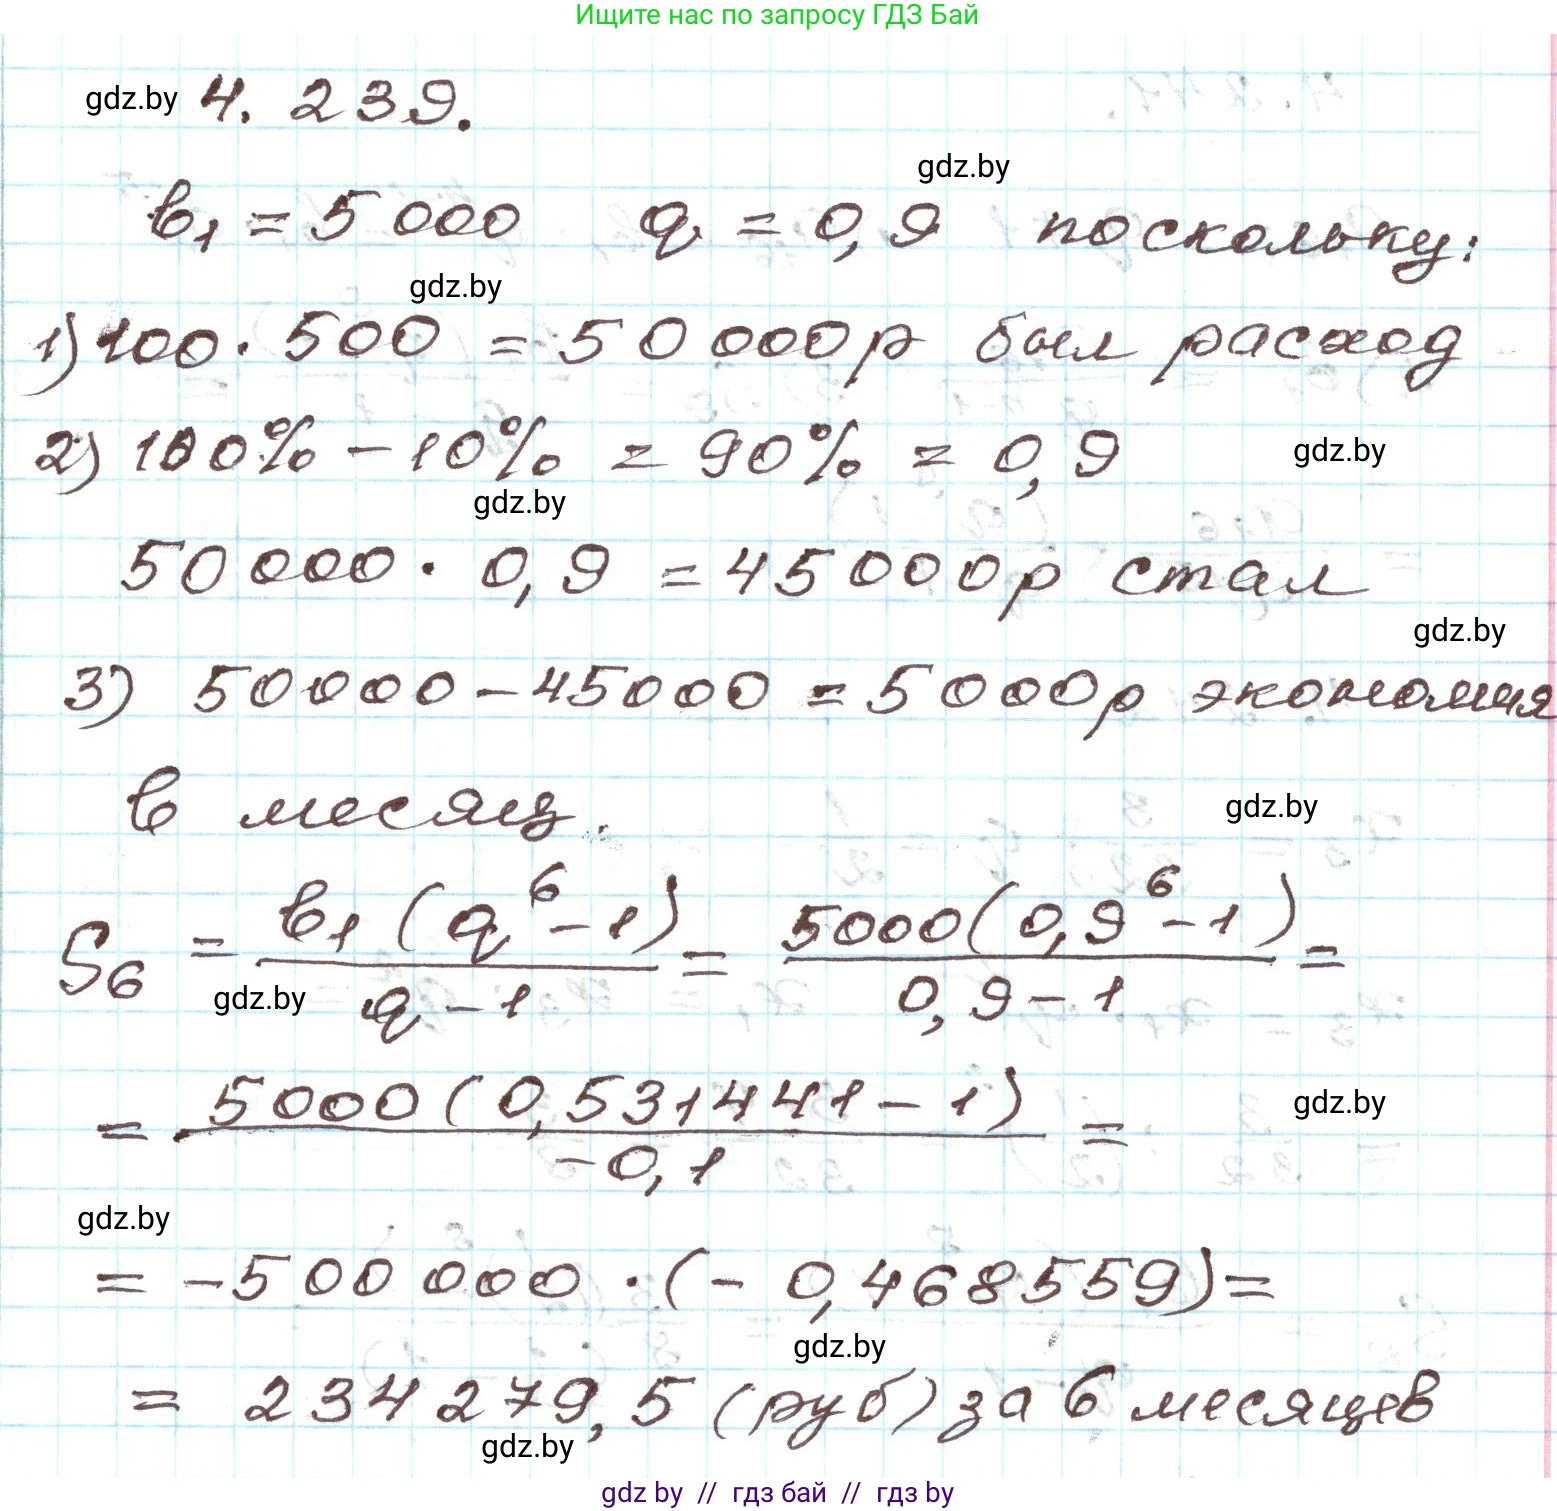 Ищите нас по запросу ГДЗ Бай
gdz.by 4. 239.
gdz.by
b₁ = 5000 q = 0,9 поскольку:
gdz.by
1) 100 · 500 = 50 000р был расход
2) 100% - 10% = 90% = 0,9 gdz.by
gdz.by
50 000 · 0,9 = 45 000р стал
gdz.by
3) 50000 - 45000 = 5000р экономия
в месяц. gdz.by
S₆ = b₁(q⁶-1)/(q-1) = 5000(0,9⁶-1)/(0,9-1) =
gdz.by
= 5000(0,531441-1)/(-0,1) = gdz.by
gdz.by
= -500 000 · (-0,468559) =
gdz.by
= 234 279,5 (руб) за 6 месяцев
gdz.by
gdz by // гдз бай // gdz by